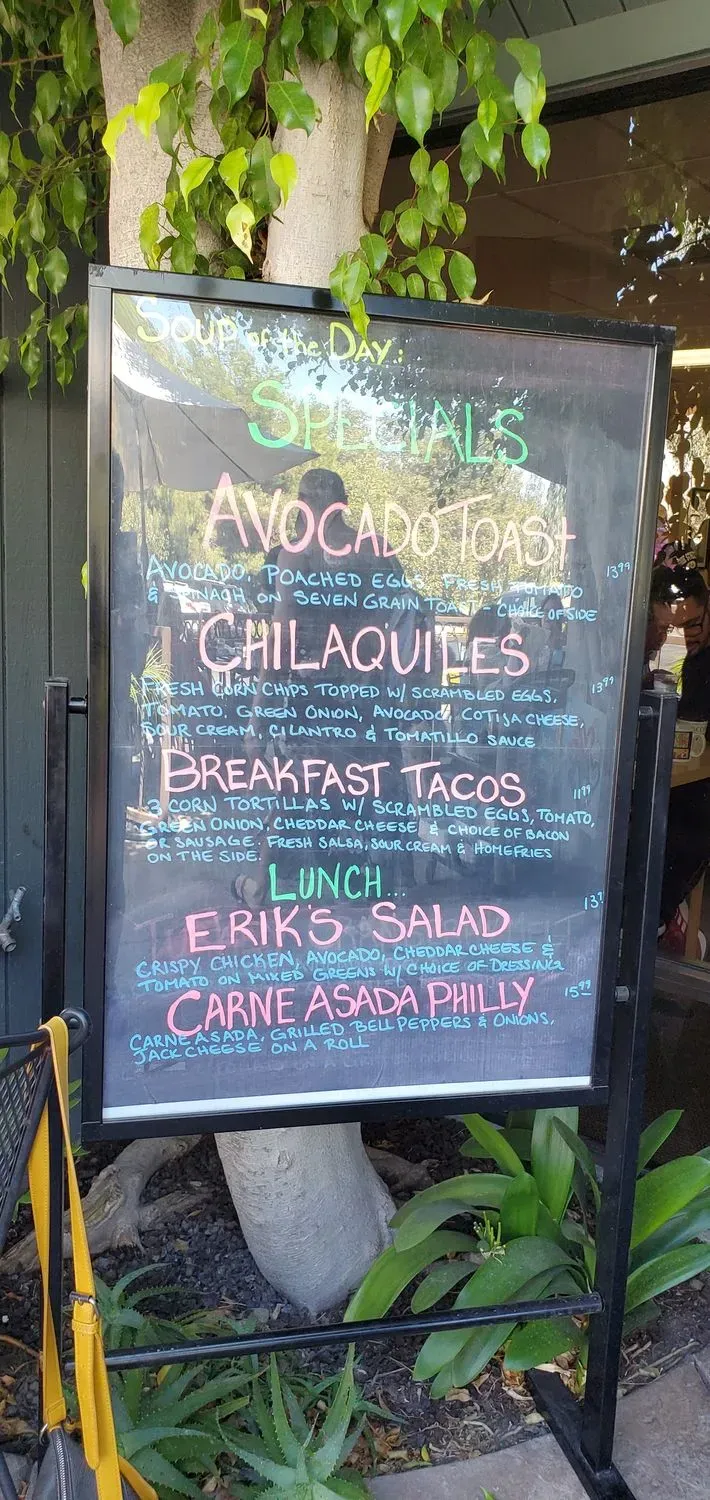 SOUP of the DAY:
SPECIALS
AVOCADO TOAST
13.99
AVOCADO, POACHED EGGS, FRESH TOMATO
& SPINACH ON SEVEN GRAIN TOAST - CHOICE OF SIDE
CHILAQUILES
13.99
FRESH CORN CHIPS TOPPED W/ SCRAMBLED EGGS,
TOMATO, GREEN ONION, AVOCADO, COTIJA CHEESE,
SOUR CREAM, CILANTRO & TOMATILLO SAUCE
BREAKFAST TACOS
11.99
3 CORN TORTILLAS W/ SCRAMBLED EGGS, TOMATO,
GREEN ONION, CHEDDAR CHEESE & CHOICE OF BACON
OR SAUSAGE. FRESH SALSA, SOUR CREAM & HOMEFRIES
ON THE SIDE.
LUNCH...
ERIK'S SALAD
CRISPY CHICKEN, AVOCADO, CHEDDAR CHEESE &
TOMATO ON MIXED GREENS W/ CHOICE OF DRESSING
CARNE ASADA PHILLY
15.99
CARNE ASADA, GRILLED BELL PEPPERS & ONIONS,
JACK CHEESE ON A ROLL